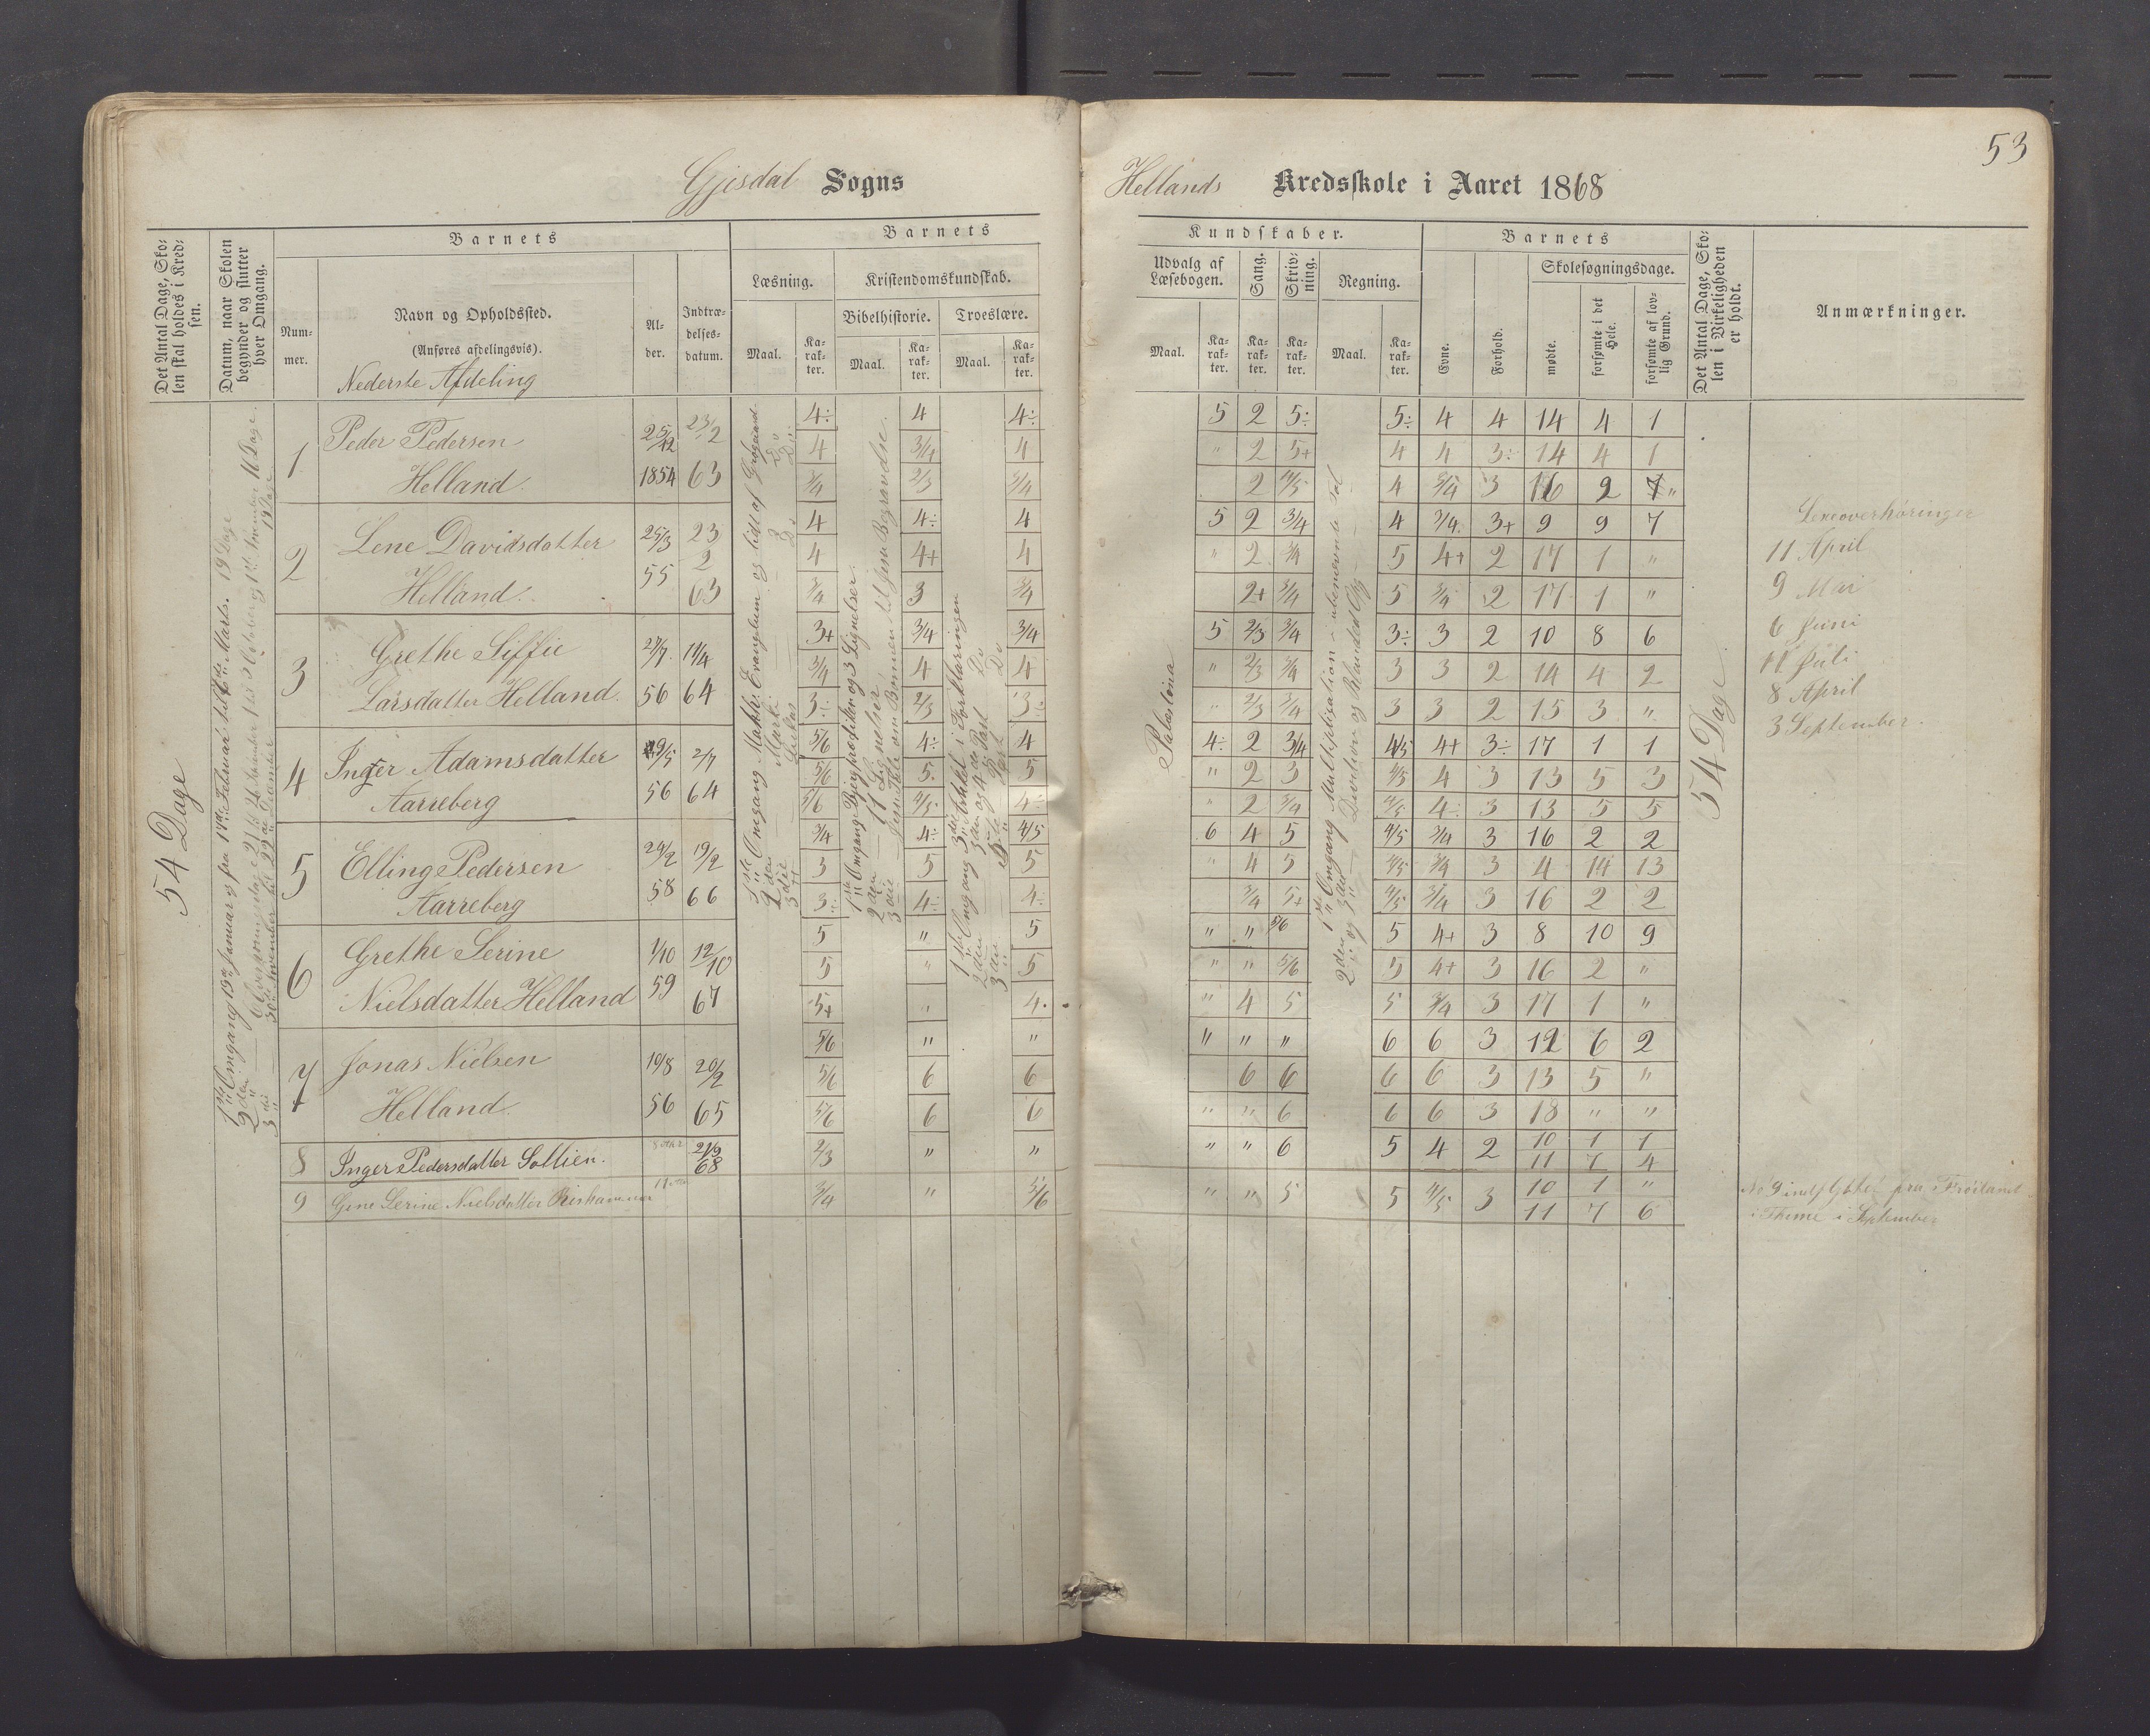 53
Gjesdal Sogns
Hellands Kredsskole i Aaret 1868
Det Antal Dage, Skolen skal holdes i Kredsen.
Datum, naar Skolen begynder og slutter hver Omgang.
Barnets
Nummer.
Navn og Opholdssted.
(Anføres afdelingsvis).
Nederste Afdeling
Alder.
Indtrædelsesdatum.
Barnets
Læsning.
Maal.
Karakter.
Kristendomskundskab.
Bibelhistorie.
Maal.
Karakter.
Troeslære.
Maal.
Karakter.
Kundskaber.
Udvalg af Læsebogen.
Maal.
Karakter.
Sang.
Karakter.
Skrivning.
Karakter.
Regning.
Maal.
Karakter.
Barnets
Evne.
Forhold.
Skolesøgningsdage.
mødte.
forsømte i det Hele.
forsømte af lovlig Grund.
Det Antal Dage, Skolen i Virkeligheden er holdt.
Anmærkninger.
54 Dage
Palæstina
54 Dage.
1 Peder Pedersen 25/12 23/2
Helland. 1854 63
4÷ 4 4÷ 5 2 5÷ 5÷ 4 4 14 4 1
4 3/4 4 " 2 5+ 4 4 3÷ 14 4 1
3/4 2/3 3/4 2 4/5 4 3/4 3 16 2 "
2 Lene Davidsdatter 25/3 23/2
Helland. 55 63
4 4÷ 4 5 2 3/4 4 3/4 3+ 9 9 7
4 4+ 4 " 2 3/4 5 4+ 2 17 1 "
3/4 3 3/4 2+ 3/4 5 3/4 2 17 1 "
3 Grethe Siffie 27/7 14/4
Larsdatter Helland. 56 64
3+ 3/4 3/4 5 2/3 3/4 3÷ 3 2 10 8 6
3/4 4 4 " 2/3 3/4 3 3 2 14 4 2
3÷ 2/3 3÷ " 2/3 3/4 3 3 2 15 3 "
4 Inger Adamsdatter 29/5 2/7
Aarreberg 56 64
5/6 4÷ 4 4÷ 2 3/4 4/5 4+ 3÷ 17 1 1
5/6 5 5 " 2 3 4/5 4 3 13 5 3
5/6 4/5 4÷ " 2 3/4 4/5 4÷ 3 13 5 5
5 Elling Pedersen 24/2 19/2
Aarreberg 58 66
3/4 4÷ 4/5 6 4 5 4/5 3/4 3 16 2 2
3 5 5 " 4 5 4/5 3/4 3 4 14 13
3÷ 4÷ 4÷ 3/4 5+ 4/5 3/4 3 16 2 2
6 Grethe Serine 1/10 12/10
Nielsdatter Helland 59 67
5 " 5 " " 5/6 5 4+ 3 8 10 9
5 " 5 " " 5/6 5 4+ 3 16 2 "
5+ " 4. " 4 5 5 3/4 3 17 1 "
7 Jonas Nielsen 19/8 20/2
Helland. 56 65
5/6 " " " " " 6 6 3 12 6 2
5/6 6 6 6 6 6 6 3 13 5 "
5/6 6 6 " " 6 6 6 3 18 " "
8 Inger Pedersdatter Sollien. 21/9 68
2/3 " " " " 6 5 4 2 10/11 1/7 1/4
9 Gine Serine Nielsdatter
3/4 " 5/6 " " 5 5 4/5 3 10/11 1/7 "/6
Lexeoverhøringer
11 April
9 Mai
6 Juni
11 Juli
8 April
3 September.
No 9 indflyttet fra Frøiland
i Thime i September